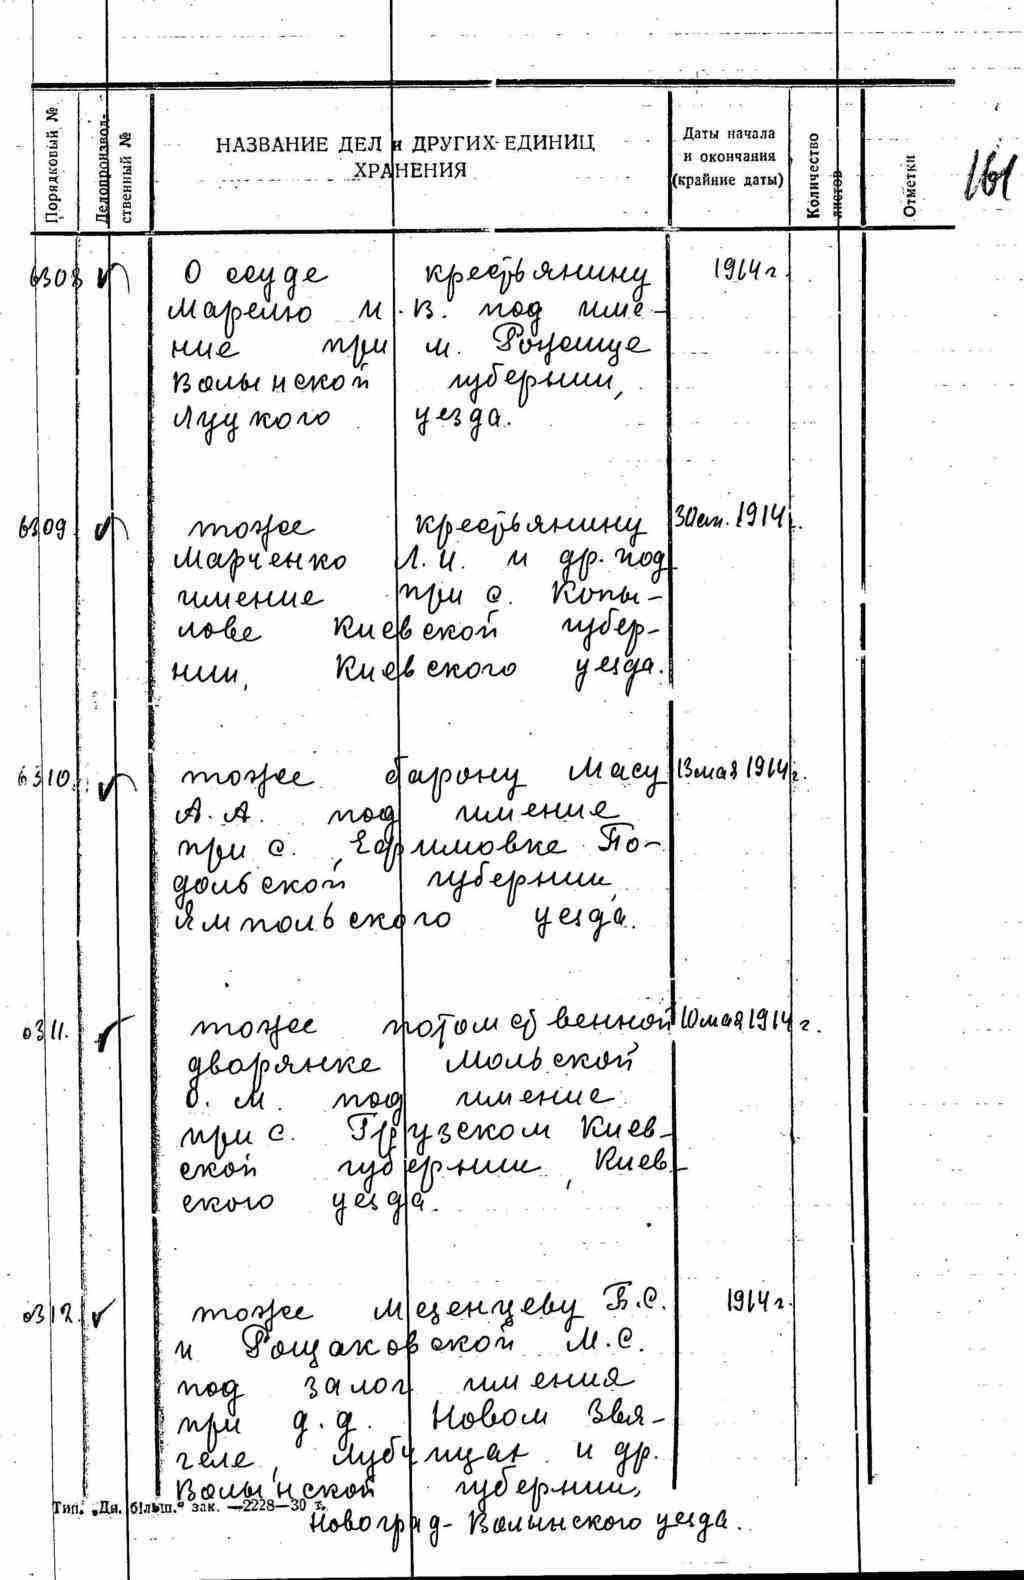 Порядковый №
Делопроизвод-
ственный №
НАЗВАНИЕ ДЕЛ и ДРУГИХ ЕДИНИЦ
ХРАНЕНИЯ
Даты начала
и окончания
(крайние даты)
Количество
листов
Отметки
161
6308 О ссуде крестьянину 1914 г.
Марелю И.В. под име-
ние при м. Рожище
Волынской губернии,
Луцкого уезда.
6309 тоже крестьянину 1914 г.
Марченко Л.И. и др. под
имение при с. Копы-
лове Киевской губер-
нии, Киевского уезда.
6310. тоже барону Масу 13 мая 1914 г.
А.А. под имение
при с. Ефимовке По-
дольской губернии,
Ямпольского уезда.
6311. тоже потомственной 10 мая 1914 г.
дворянке Мольской
О. М. под имение
при с. Грузском Киев-
ской губернии, Киев-
ского уезда.
6312. тоже Мезенцеву Б.С. 1914 г.
и Рощаковской М.С.
под залог имения
при д.д. Новом Звя-
геле, и др.
Волынской губернии,
Тип. „Дн. більш." зак. —2228—30 т.
Новоград-Волынского уезда.